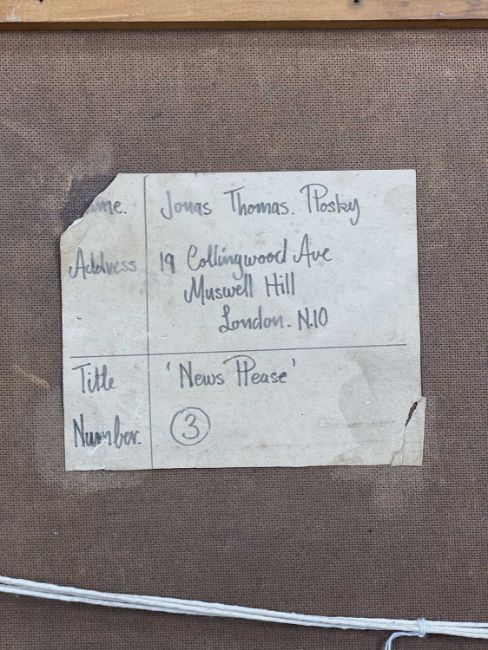 ame. Jonas Thomas. Plosky
Address 19 Collingwood Ave
Muswell Hill
London. N.10
Title 'News Please'
Number. 3